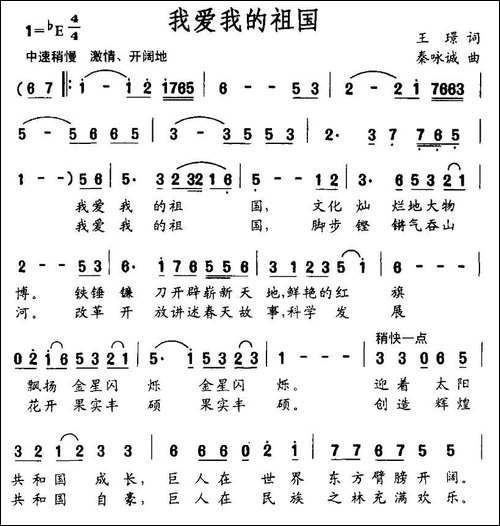 我爱我的祖国
1=♭E 4/4
王璟 词
中速稍慢 激情、开阔地
秦咏诚 曲
(6 7 ‖: 1 - 1 2 1765 | 6 - - 5 6 | 2 - 2 1 7663 |
5 - 5 6 6 5 | 3 - 3 5 3 5 | 2· 3 7 7 6 5 |
1 - - ) 5 6 | 5· 3 2 3 2 1 6 | 5 - - 1 2 | 3· 6 5 3 2 1 |
我爱 我 的祖 国, 文化 灿 烂地大物
我爱 我 的祖 国, 脚步 铿 锵气吞山
2 - - 5 3 | 6· 1 7 6 5 5 6 | 3 1 2 3 5 1 | 6 - - |
博。 铁锤 镰 刀开辟崭新天 地,鲜艳的红 旗
河。 改革 开 放讲述春天故 事,科学 发 展
稍快一点
0 2 1 6 5 3 2 1 | 5· 1 5 3 2 3 | 1 - - - | 3 3 0 6 5 |
飘扬 金星闪 烁 金星闪 烁。 迎着 太阳
花开 果实丰 硕 果实丰 硕。 创造 辉煌
3 2 1 2 3 | 2 1 2 3 2 | 6 6 6 6 5 | 2 1 2 | 7 7 6 7 5 5 |
共和国 成长, 巨人在 世界 东方臂膀开阔。
共和国 自豪, 巨人在 民族 之林充满欢乐。